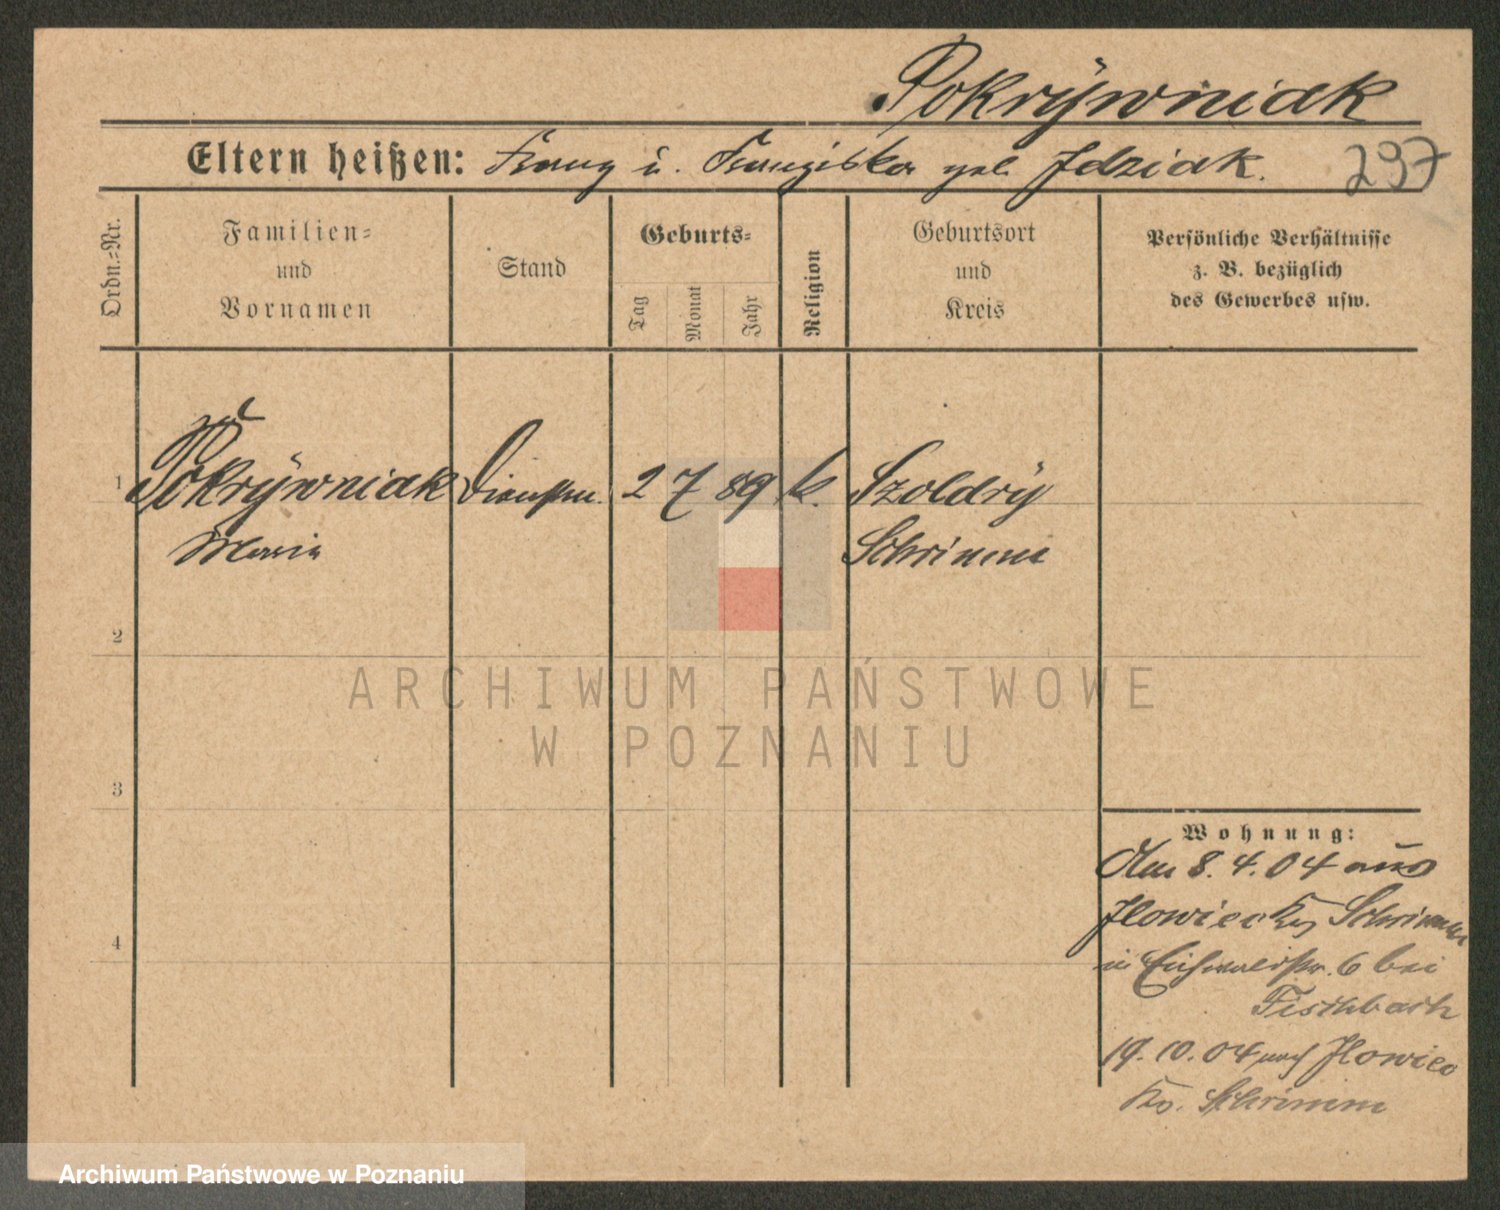 Pokrÿwniak
Eltern heißen: Franz u. Franziska geb. Jdziak.
297
Ordn.-Nr.
Familien-
und
Vornamen
Stand
Geburts-
Tag
Monat
Jahr
Religion
Geburtsort
und
Kreis
Persönliche Verhältnisse
z. B. bezüglich
des Gewerbes usw.
1 Pokrÿwniak 2 7 89 k. Szoldrÿ
Maria Schrimm
2
ARCHIWUM PAŃSTWOWE
W POZNANIU
3
Wohnung:
Am 8. 4. 04 aus
Jlowiec Krs Schrimm
in Eichwaldstr. 6 bei
Fischbach
19. 10. 04 nach Jlowiec
Kr. Schrimm
4
Archiwum Państwowe w Poznaniu